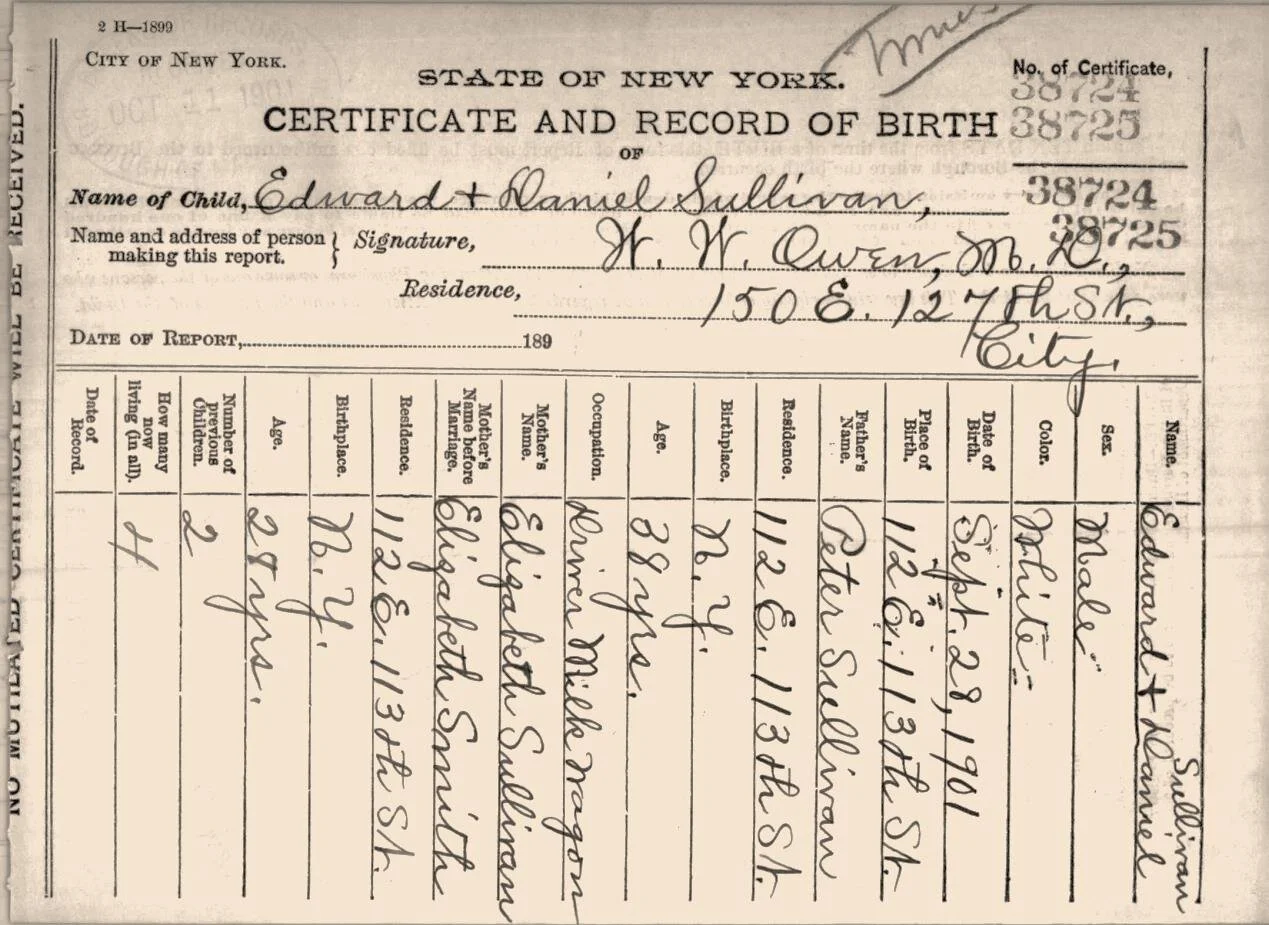 2 H—1899
CITY OF NEW YORK.
OCT 11 1901
STATE OF NEW YORK.
No. of Certificate,
38724
38725
CERTIFICATE AND RECORD OF BIRTH
OF
Name of Child, Edward + Daniel Sullivan,
38724
38725
Name and address of person making this report. } Signature, W. W. Owen, M. D.,
Residence, 150 E. 127th St.,
City.
DATE OF REPORT, 189
Name. Edward + Daniel Sullivan
Sex. Male
Color. White
Date of Birth. Sept. 28, 1901
Place of Birth. 112 E. 113th St.
Father's Name. Peter Sullivan
Residence. 112 E. 113th St.
Birthplace. N. Y.
Age. 38 yrs.
Occupation. Driver Milk Wagon
Mother's Name. Elizabeth Sullivan
Mother's Name before Marriage. Elizabeth Smith
Residence. 112 E. 113th St.
Birthplace. N. Y.
Age. 28 yrs.
Number of previous Children. 2
How many now living (in all). 4
Date of Record.
NO MUTILATED CERTIFICATE WILL BE RECEIVED.